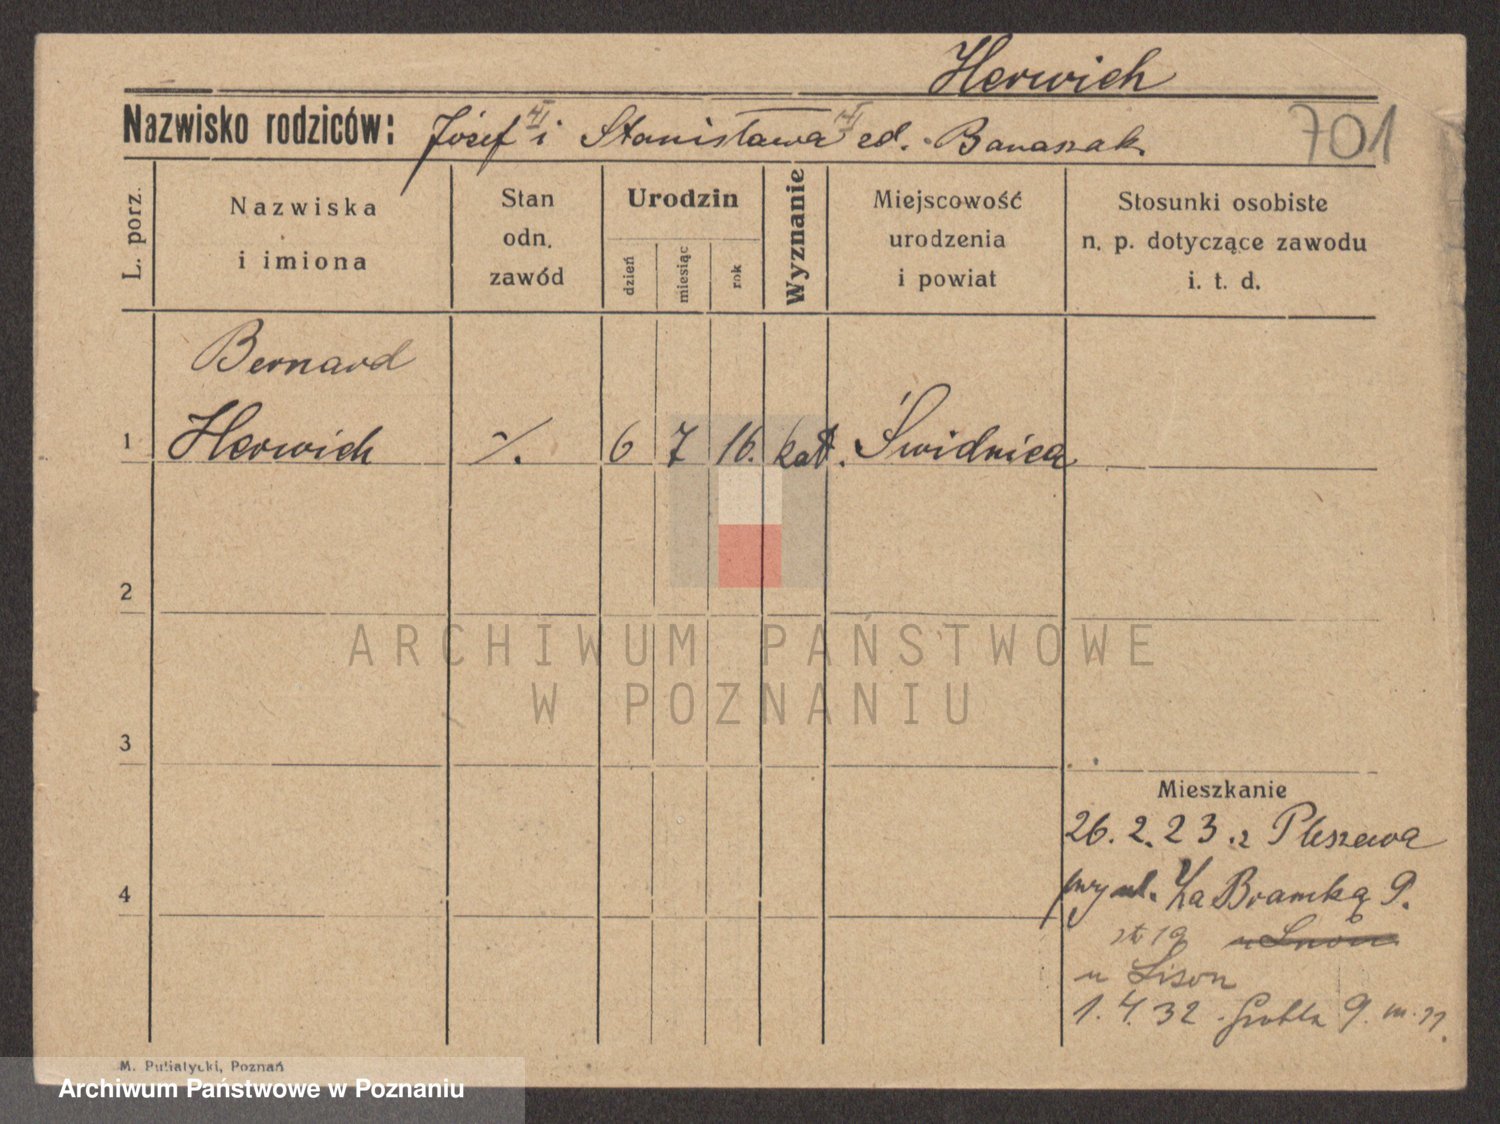 Herwich
Nazwisko rodziców: Józef i Stanisława Banaszak.
701
L. porz.
Nazwiska
i imiona
Stan
odn.
zawód
Urodzin
dzień
miesiąc
rok
Wyznanie
Miejscowość
urodzenia
i powiat
Stosunki osobiste
n. p. dotyczące zawodu
i. t. d.
Bernard
1 Herwich ·/. 6 7 16. kat. Świdnica
2
3
4
Mieszkanie
26. 2. 23. z Pleszewa
przy ul. Za Bramką 9.
u Lison
1. 4. 32. Grobla 9. m. 11.
ARCHIWUM PAŃSTWOWE
W POZNANIU
M. Putiatycki, Poznań
Archiwum Państwowe w Poznaniu